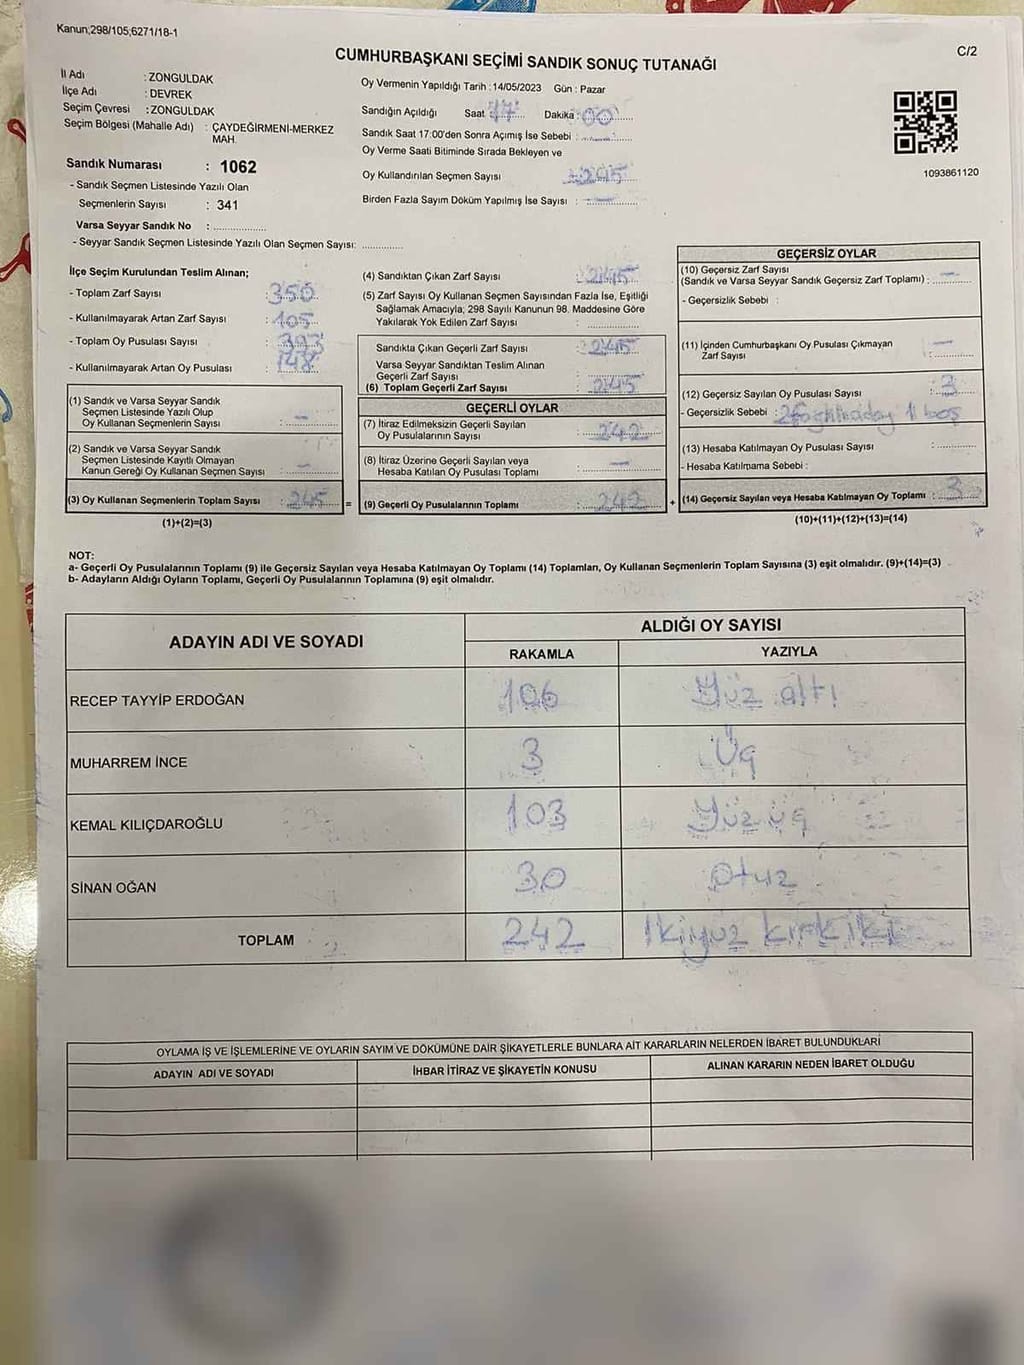 Kanun;298/105;6271/18-1
C/2
CUMHURBAŞKANI SEÇİMİ SANDIK SONUÇ TUTANAĞI
İl Adı : ZONGULDAK
İlçe Adı : DEVREK
Seçim Çevresi : ZONGULDAK
Seçim Bölgesi (Mahalle Adı) : ÇAYDEĞİRMENİ-MERKEZ
MAH.
Sandık Numarası : 1062
- Sandık Seçmen Listesinde Yazılı Olan
Seçmenlerin Sayısı : 341
Varsa Seyyar Sandık No :
- Seyyar Sandık Seçmen Listesinde Yazılı Olan Seçmen Sayısı:
Oy Vermenin Yapıldığı Tarih : 14/05/2023 Gün : Pazar
Sandığın Açıldığı Saat 17 Dakika : 00
Sandık Saat 17:00'den Sonra Açımış İse Sebebi : —
Oy Verme Saati Bitiminde Sırada Bekleyen ve
Oy Kullandırılan Seçmen Sayısı : 245
Birden Fazla Sayım Döküm Yapılmış İse Sayısı : —
1093861120
İlçe Seçim Kurulundan Teslim Alınan;
- Toplam Zarf Sayısı : 350
- Kullanılmayarak Artan Zarf Sayısı : 105
- Toplam Oy Pusulası Sayısı : 393
- Kullanılmayarak Artan Oy Pusulası : 148
(1) Sandık ve Varsa Seyyar Sandık
Seçmen Listesinde Yazılı Olup
Oy Kullanan Seçmenlerin Sayısı : —
(2) Sandık ve Varsa Seyyar Sandık
Seçmen Listesinde Kayıtlı Olmayan
Kanun Gereği Oy Kullanan Seçmen Sayısı : —
(3) Oy Kullanan Seçmenlerin Toplam Sayısı : 245 =
(1)+(2)=(3)
(4) Sandıktan Çıkan Zarf Sayısı : 245
(5) Zarf Sayısı Oy Kullanan Seçmen Sayısından Fazla İse, Eşitliği
Sağlamak Amacıyla; 298 Sayılı Kanunun 98. Maddesine Göre
Yakılarak Yok Edilen Zarf Sayısı :
Sandıkta Çıkan Geçerli Zarf Sayısı : 245
Varsa Seyyar Sandıktan Teslim Alınan
Geçerli Zarf Sayısı
(6) Toplam Geçerli Zarf Sayısı : 245
GEÇERLİ OYLAR
(7) İtiraz Edilmeksizin Geçerli Sayılan
Oy Pusulalarının Sayısı : 242
(8) İtiraz Üzerine Geçerli Sayılan veya
Hesaba Katılan Oy Pusulası Toplamı : —
(9) Geçerli Oy Pusulalarının Toplamı : 242 +
GEÇERSİZ OYLAR
(10) Geçersiz Zarf Sayısı
(Sandık ve Varsa Seyyar Sandık Geçersiz Zarf Toplamı) : —
- Geçersizlik Sebebi :
(11) İçinden Cumhurbaşkanı Oy Pusulası Çıkmayan
Zarf Sayısı : —
(12) Geçersiz Sayılan Oy Pusulası Sayısı : 3
- Geçersizlik Sebebi : 1 boş
(13) Hesaba Katılmayan Oy Pusulası Sayısı :
- Hesaba Katılmama Sebebi :
(14) Geçersiz Sayılan veya Hesaba Katılmayan Oy Toplamı : 3
(10)+(11)+(12)+(13)=(14)
NOT:
a- Geçerli Oy Pusulalarının Toplamı (9) ile Geçersiz Sayılan veya Hesaba Katılmayan Oy Toplamı (14) Toplamları, Oy Kullanan Seçmenlerin Toplam Sayısına (3) eşit olmalıdır. (9)+(14)=(3)
b- Adayların Aldığı Oyların Toplamı, Geçerli Oy Pusulalarının Toplamına (9) eşit olmalıdır.
ADAYIN ADI VE SOYADI ALDIĞI OY SAYISI
RAKAMLA YAZIYLA
RECEP TAYYİP ERDOĞAN 106 Yüz altı
MUHARREM İNCE 3 Üç
KEMAL KILIÇDAROĞLU 103 Yüz üç
SİNAN OĞAN 30 Otuz
TOPLAM 242 İkiyüz kırkiki
OYLAMA İŞ VE İŞLEMLERİNE VE OYLARIN SAYIM VE DÖKÜMÜNE DAİR ŞİKAYETLERLE BUNLARA AİT KARARLARIN NELERDEN İBARET BULUNDUKLARI
ADAYIN ADI VE SOYADI İHBAR İTİRAZ VE ŞİKAYETİN KONUSU ALINAN KARARIN NEDEN İBARET OLDUĞU